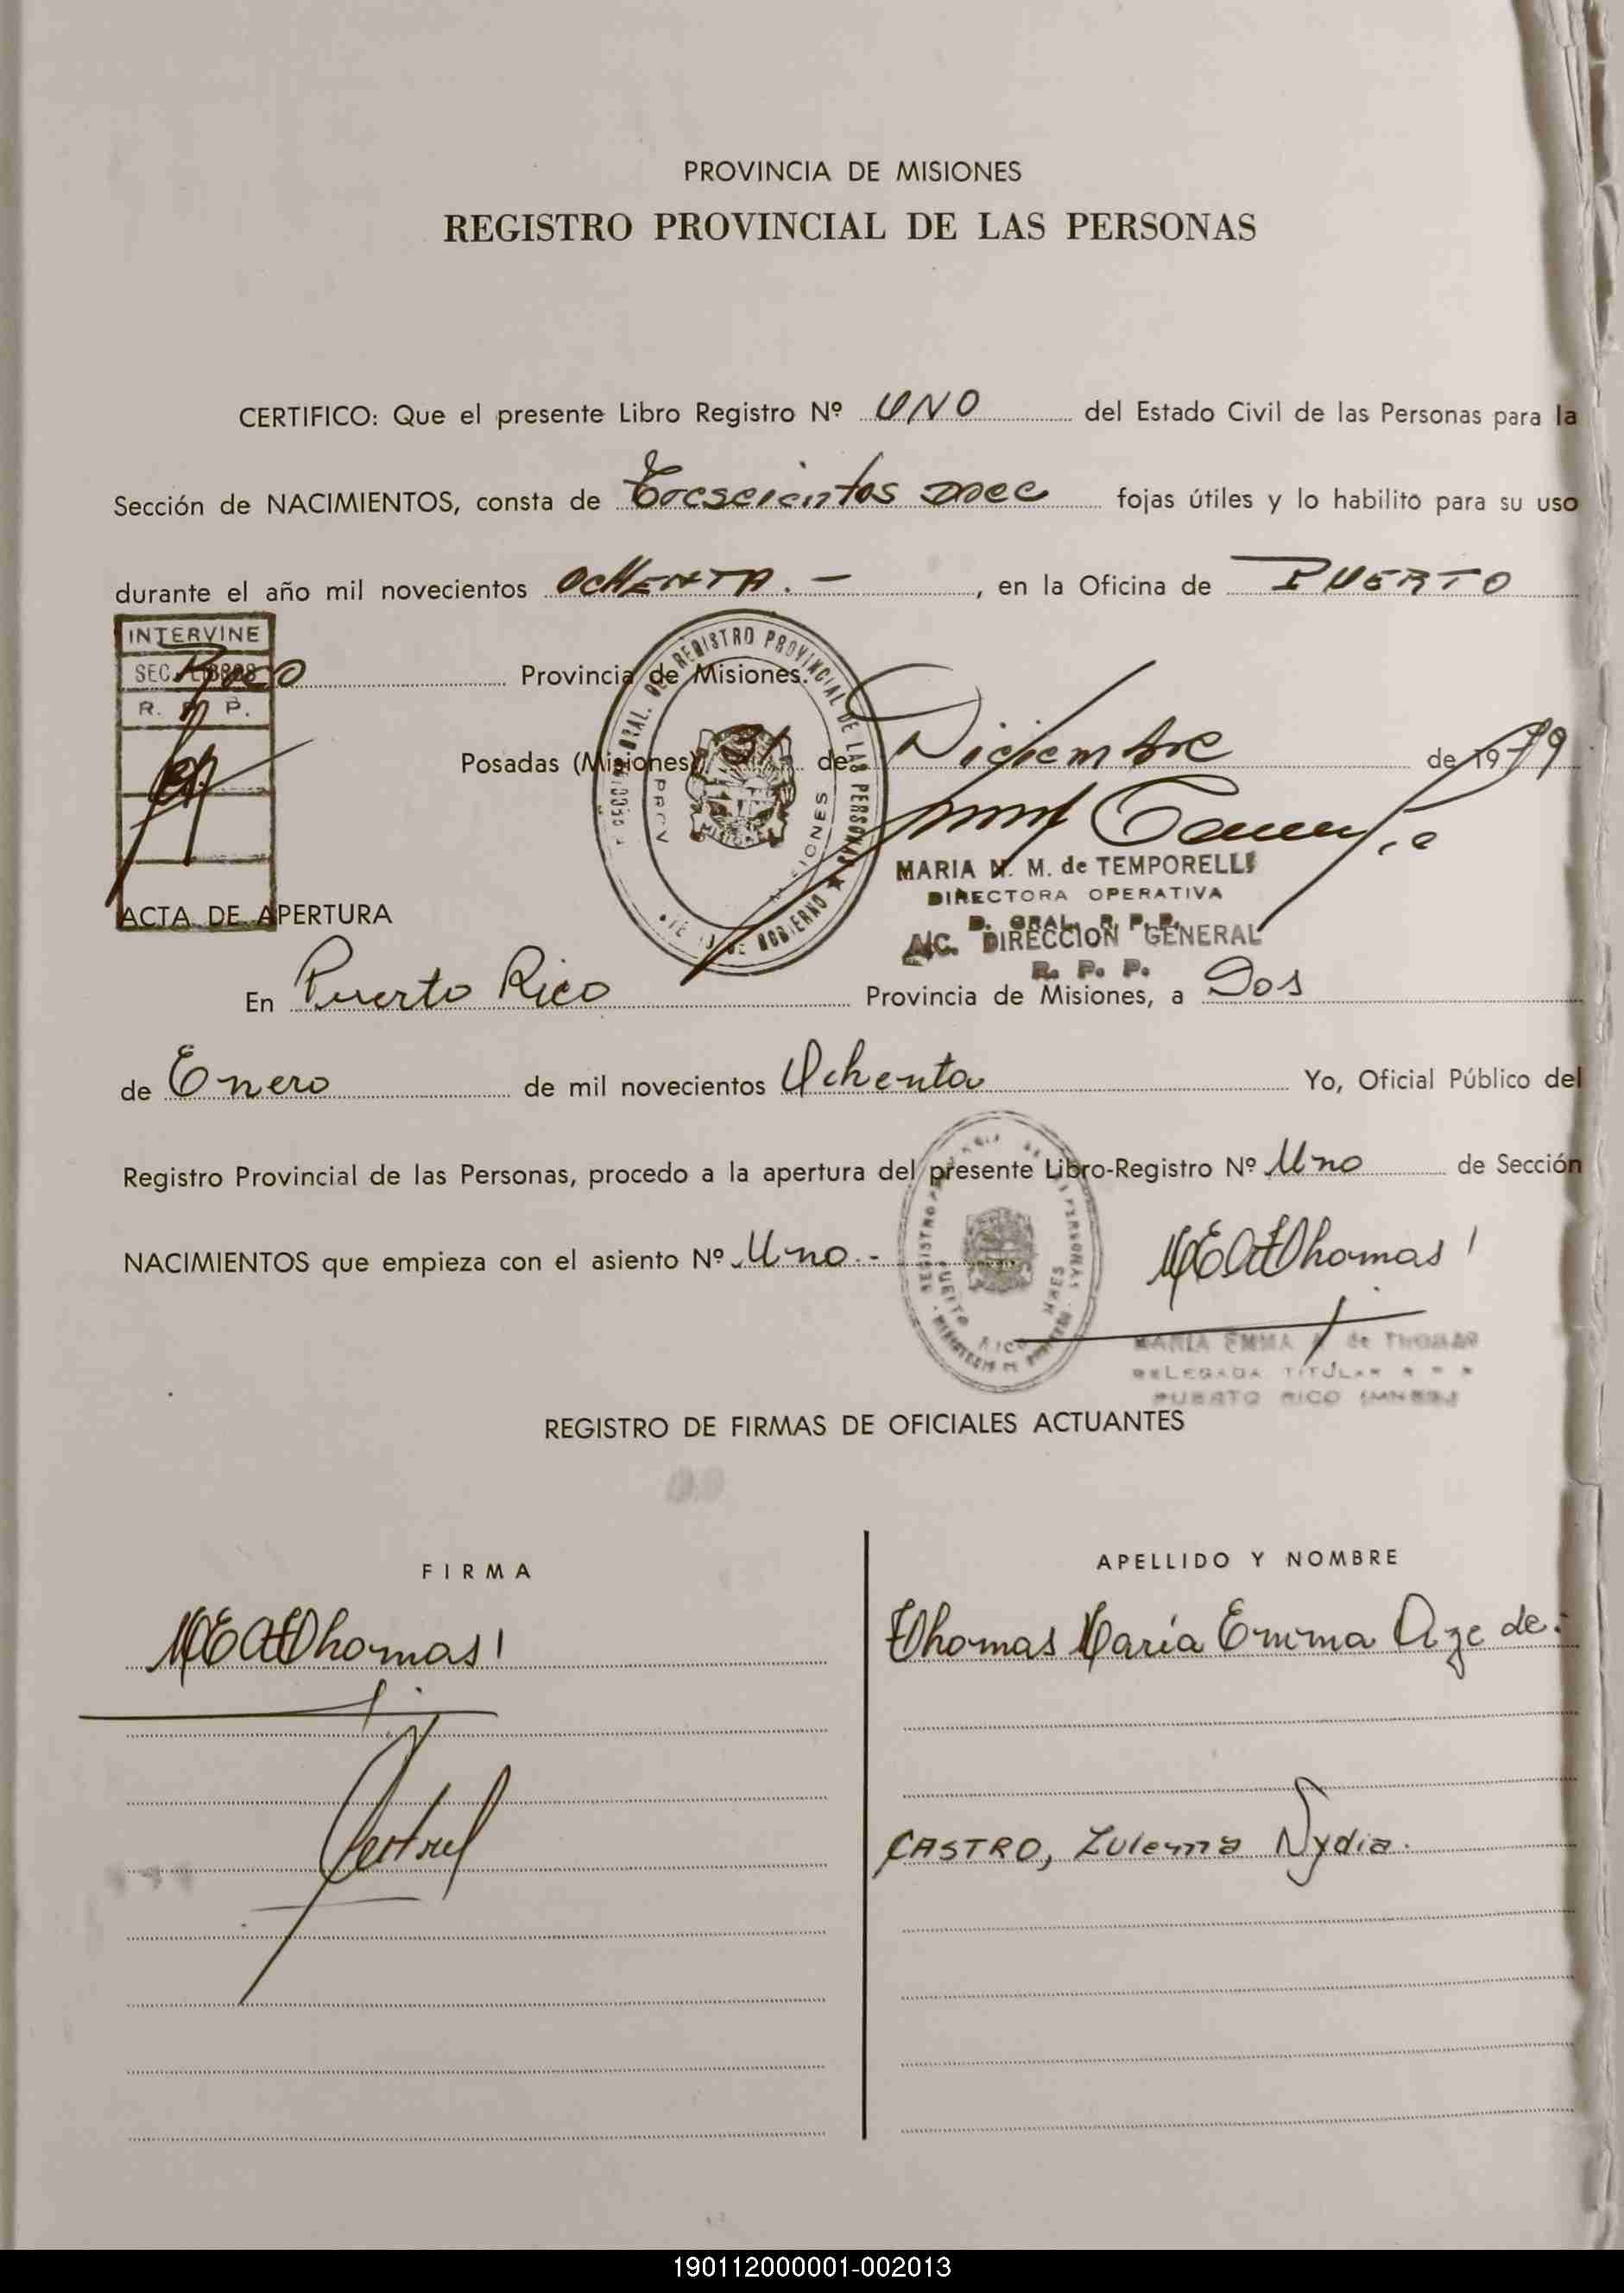 PROVINCIA DE MISIONES
REGISTRO PROVINCIAL DE LAS PERSONAS
CERTIFICO: Que el presente Libro Registro Nº UNO del Estado Civil de las Personas para la
Sección de NACIMIENTOS, consta de fojas útiles y lo habilito para su uso
durante el año mil novecientos OCHENTA.- , en la Oficina de PUERTO
INTERVINE
SEC.
R. P. P.
RICO Provincia de Misiones.
DEL REGISTRO PROVINCIAL DE LAS PERSONAS
Posadas (Misiones) 31 de Diciembre de 1979
MARIA N. M. de TEMPORELLI
DIRECTORA OPERATIVA
D. GRAL. R. P. P.
A/C. DIRECCION GENERAL
R. P. P.
ACTA DE APERTURA
En Puerto Rico Provincia de Misiones, a Dos
de Enero de mil novecientos Ochenta Yo, Oficial Público del
Registro Provincial de las Personas, procedo a la apertura del presente Libro-Registro Nº Uno de Sección
NACIMIENTOS que empieza con el asiento Nº Uno.-
MEAThomas
PUERTO RICO MNES
MARIA EMMA A de THOMAS
DELEGADA TITULAR
PUERTO RICO (MNES)
REGISTRO DE FIRMAS DE OFICIALES ACTUANTES
FIRMA
APELLIDO Y NOMBRE
MEAThomas
Thomas María Emma Aze de.
CASTRO, Zulema Nydia.
190112000001-002013